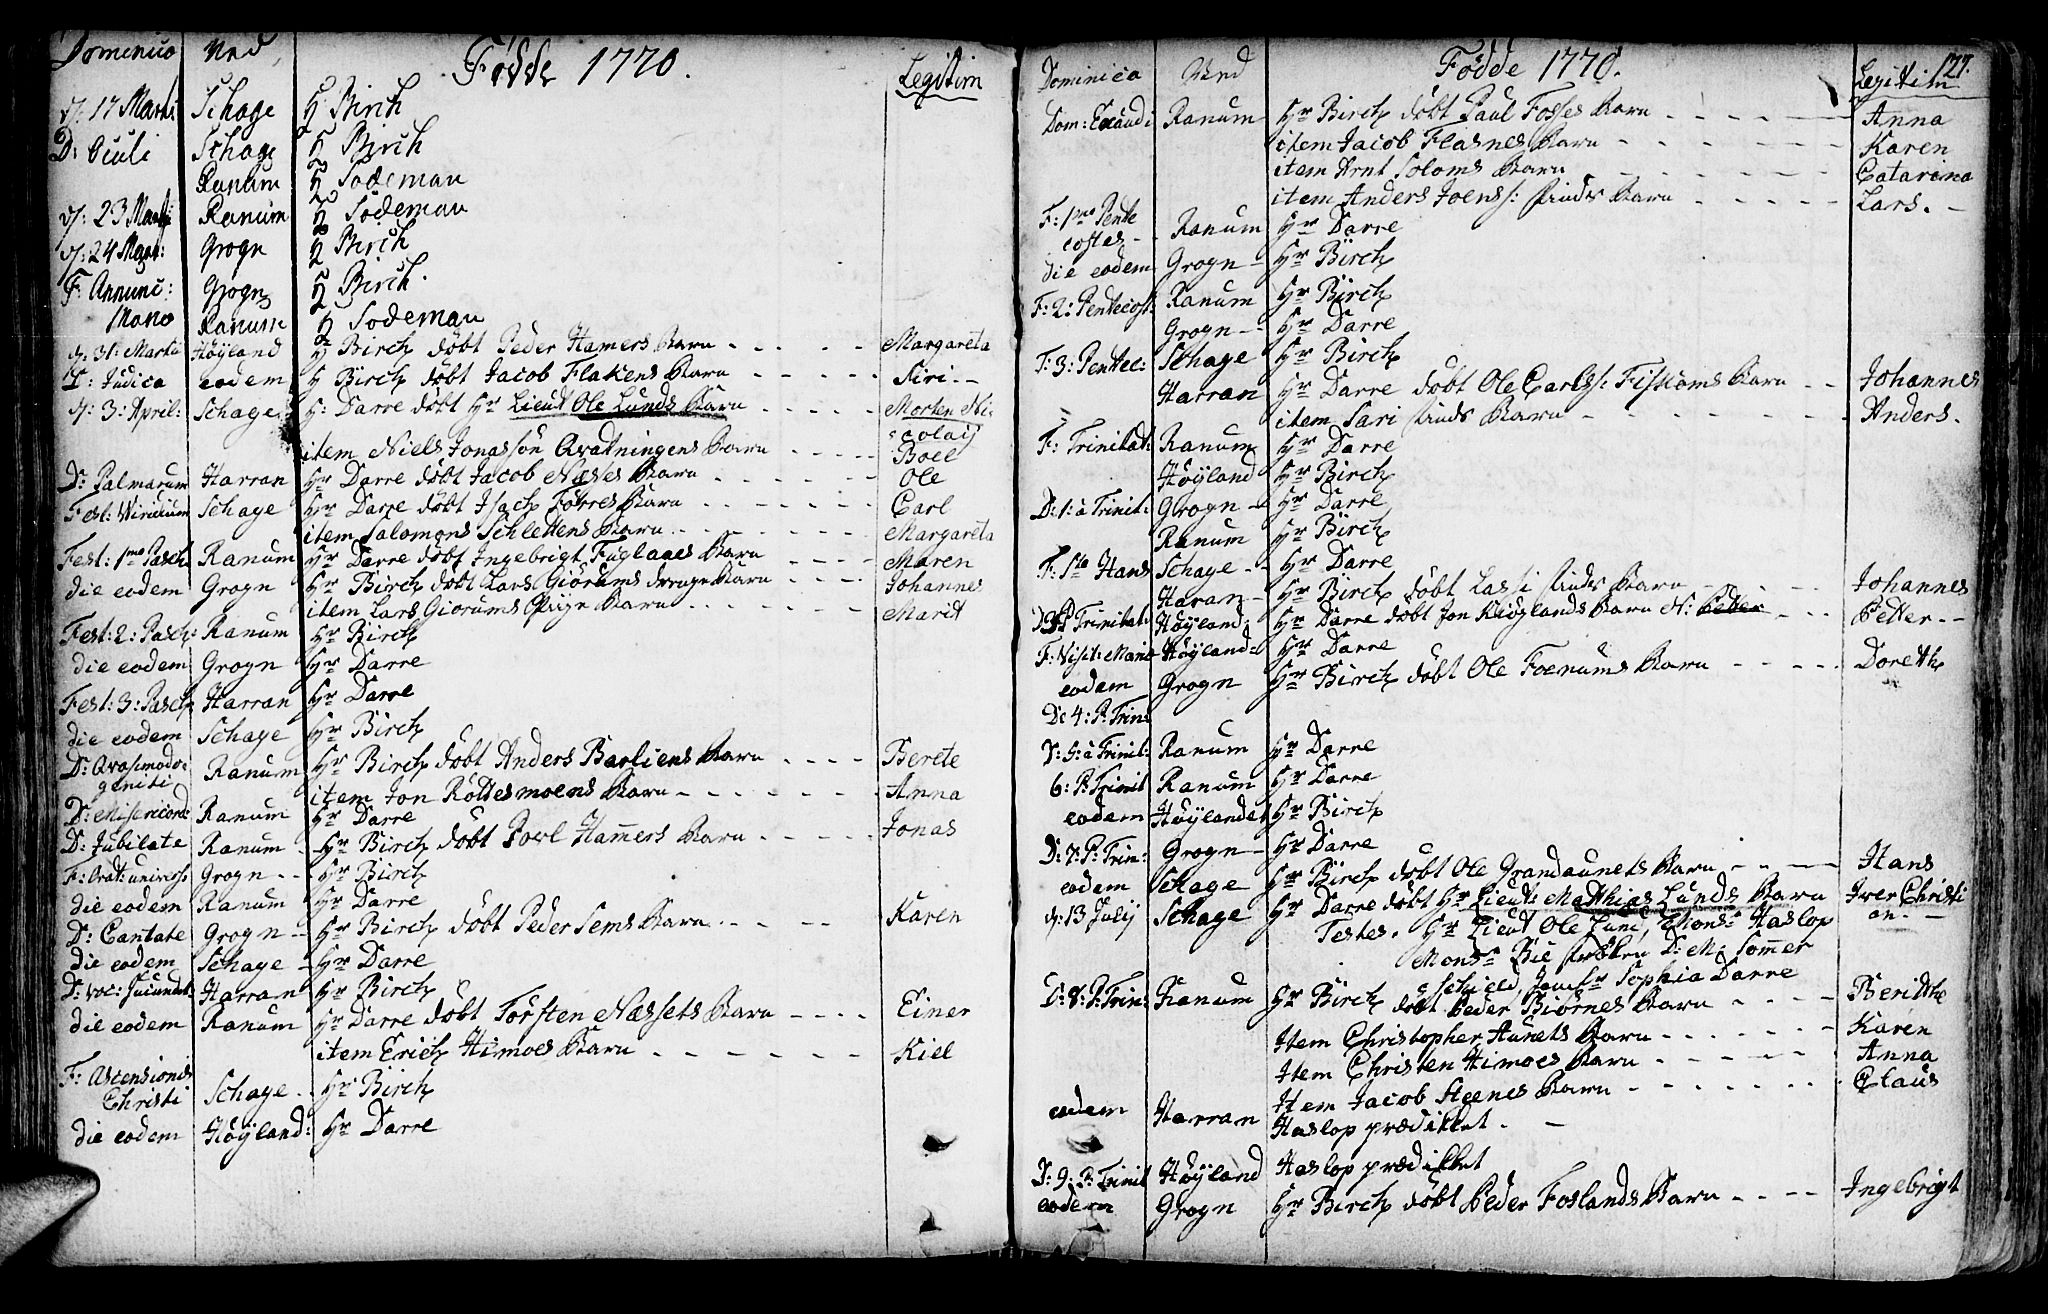 Dominica Ved Fødde 1770. Legitim
d: 17 Marti Schage H Birch
D: Oculi Schage H Birch
Ranum H Sodeman
d: 23 Marti Ranum H Sodeman
d: 24 Mart: Grogn H Birch
F: Annunc: Grogn H Birch.
Mariæ Ranum H Sodeman
d: 31: Marti Høyland H Birch døbt Peder Hamers Barn - - - - - Margareta
D: Judica eodem H Birch døbt Jacob Flakens Barn - - - - - Siri. -
d: 3: April: Schage H: Darre døbt Hr Lieut Ole Lunds Barn - - - - Morten Ni-
colaij
item Niels Jonassøn Qvatningens Barn - - - - - Boel
D: Palmarum Harran Hr Darre døbt Jacob Næsses Barn - - - - - Ole
Fest: Viridium Schage Hr Darre døbt Isach Førres Barn - - - - - Carl
item Salomons Schlettens Barn - - - - - Margareta
Fest: 1mo Pasch Ranum Hr Darre døbt Ingebrigt Fuglaaes Barn - - - - Maren
die eodem Grogn Hr Birch døbt Lars Giørums drenge Barn - - - - Johannes
item Lars Giorums Pige Barn - - - - - Marit
Fest: 2: Pasch: Ranum Hr Birch
die eodem Grogn Hr Darre
Fest: 3: Pasch Harran Hr Darre
die eodem Schage Hr Birch
D: Qvasimodo-
geniti Ranum Hr Birch døbt Anders Barliens Barn - - - - Berete
item Jon Røttesmoens Barn - - - - - Anna
D: Misericord: Ranum Hr Darre
D: Jubilate Ranum Hr Birch døbt Powl Hamers Barn - - - - - Jonas
F: Orat: univers: Grogn - - Hr Birch
die eodem Ranum Hr Darre
D: Cantate Grogn - Hr Birch døbt Peder Sems Barn - - - - Karen
die eodem Schage - Hr Darre
D: Voc: Jucundit: Harran Hr Birch
die eodem Ranum Hr Darre døbt Torsten Næssets Barn - - - - Einer
item Erich Himoes Barn - - - - - Kiel
F: Ascensionis
Christi Schage - - Hr Birch
die eodem Høyland: Hr Darre
127.
Dominica Ved Fødde 1770. Legitim
Dom: Exaudi Ranum Hr Birch døbt Paul Fosses Barn - - - - - Anna
item Jacob Flasnes Barn - - - - - Karen
item Arnt Soloms Barn - - - - - Catarina
item Anders Joens: Barn - - - - - Lars. -
F: 1mo Pente
costes - - Ranum Hr Darre
die eodem Grogn - Hr Birch
F: 2: Pentecost: Ranum Hr Birch
Grogn - - Hr Darre
F: 3: Pentec: Schage Hr Birch
Harran Hr Darre døbt Ole Carlss: Fiskums Barn - - Johannes
item Sari Barn - - - - - Anders.
F: Trinitat: Ranum Hr Darre
Høyland Hr Birch
D: 1: a Trinit: Grogn - Hr Darre
Ranum Hr Birch
F: Sti Hans Schage - - Hr Darre
Haran - Hr Birch døbt Lassi Barn - - - - Johannes
Trinitat: Høyland: Hr Darre døbt Jon Barn N: Petter - - Petter - -
F: Visit: Mariæ Høyland: Hr Darre
eodem Grogn Hr Birch døbt Ole Foenums Barn - - - - - Dorethe
D: 4: P: Trin:
D: 5: a Trinit: Ranum Hr Darre
6: P: Trinit Ranum Hr Darre
eodem Høylandet Hr Birch
D: 7: P: Trin: Grogn - Hr Darre
eodem Schage Hr Birch døbt Ole Grandaunets Barn - - - - Hans
d: 13 Julij Schage Hr Darre døbt Hr Lieut: Matthias Lunds Barn Iver Christi
an. -
Testes. Hr Lieut Ole Lund, Monsr Haslop
Monsr Bie Frøken D: M: Sommer
schield, Jomfr Sophia Darre
D: 8: P: Trin: Ranum Hr Birch døbt Peder Biørnes Barn - - - - - Berithe
Item Christopher Aunets Barn - - - - - Karen
Item Christen Himoes Barn - - - - - Anna
Item Jacob Steenes Barn - - - - - Claus
eodem Harran Haslop prædikket. -
D: 9: P: Trinit Høyland Haslop prædikket
eodem Grogn Hr Birch døbt Peder Foslands Barn - - - - Ingebrigt